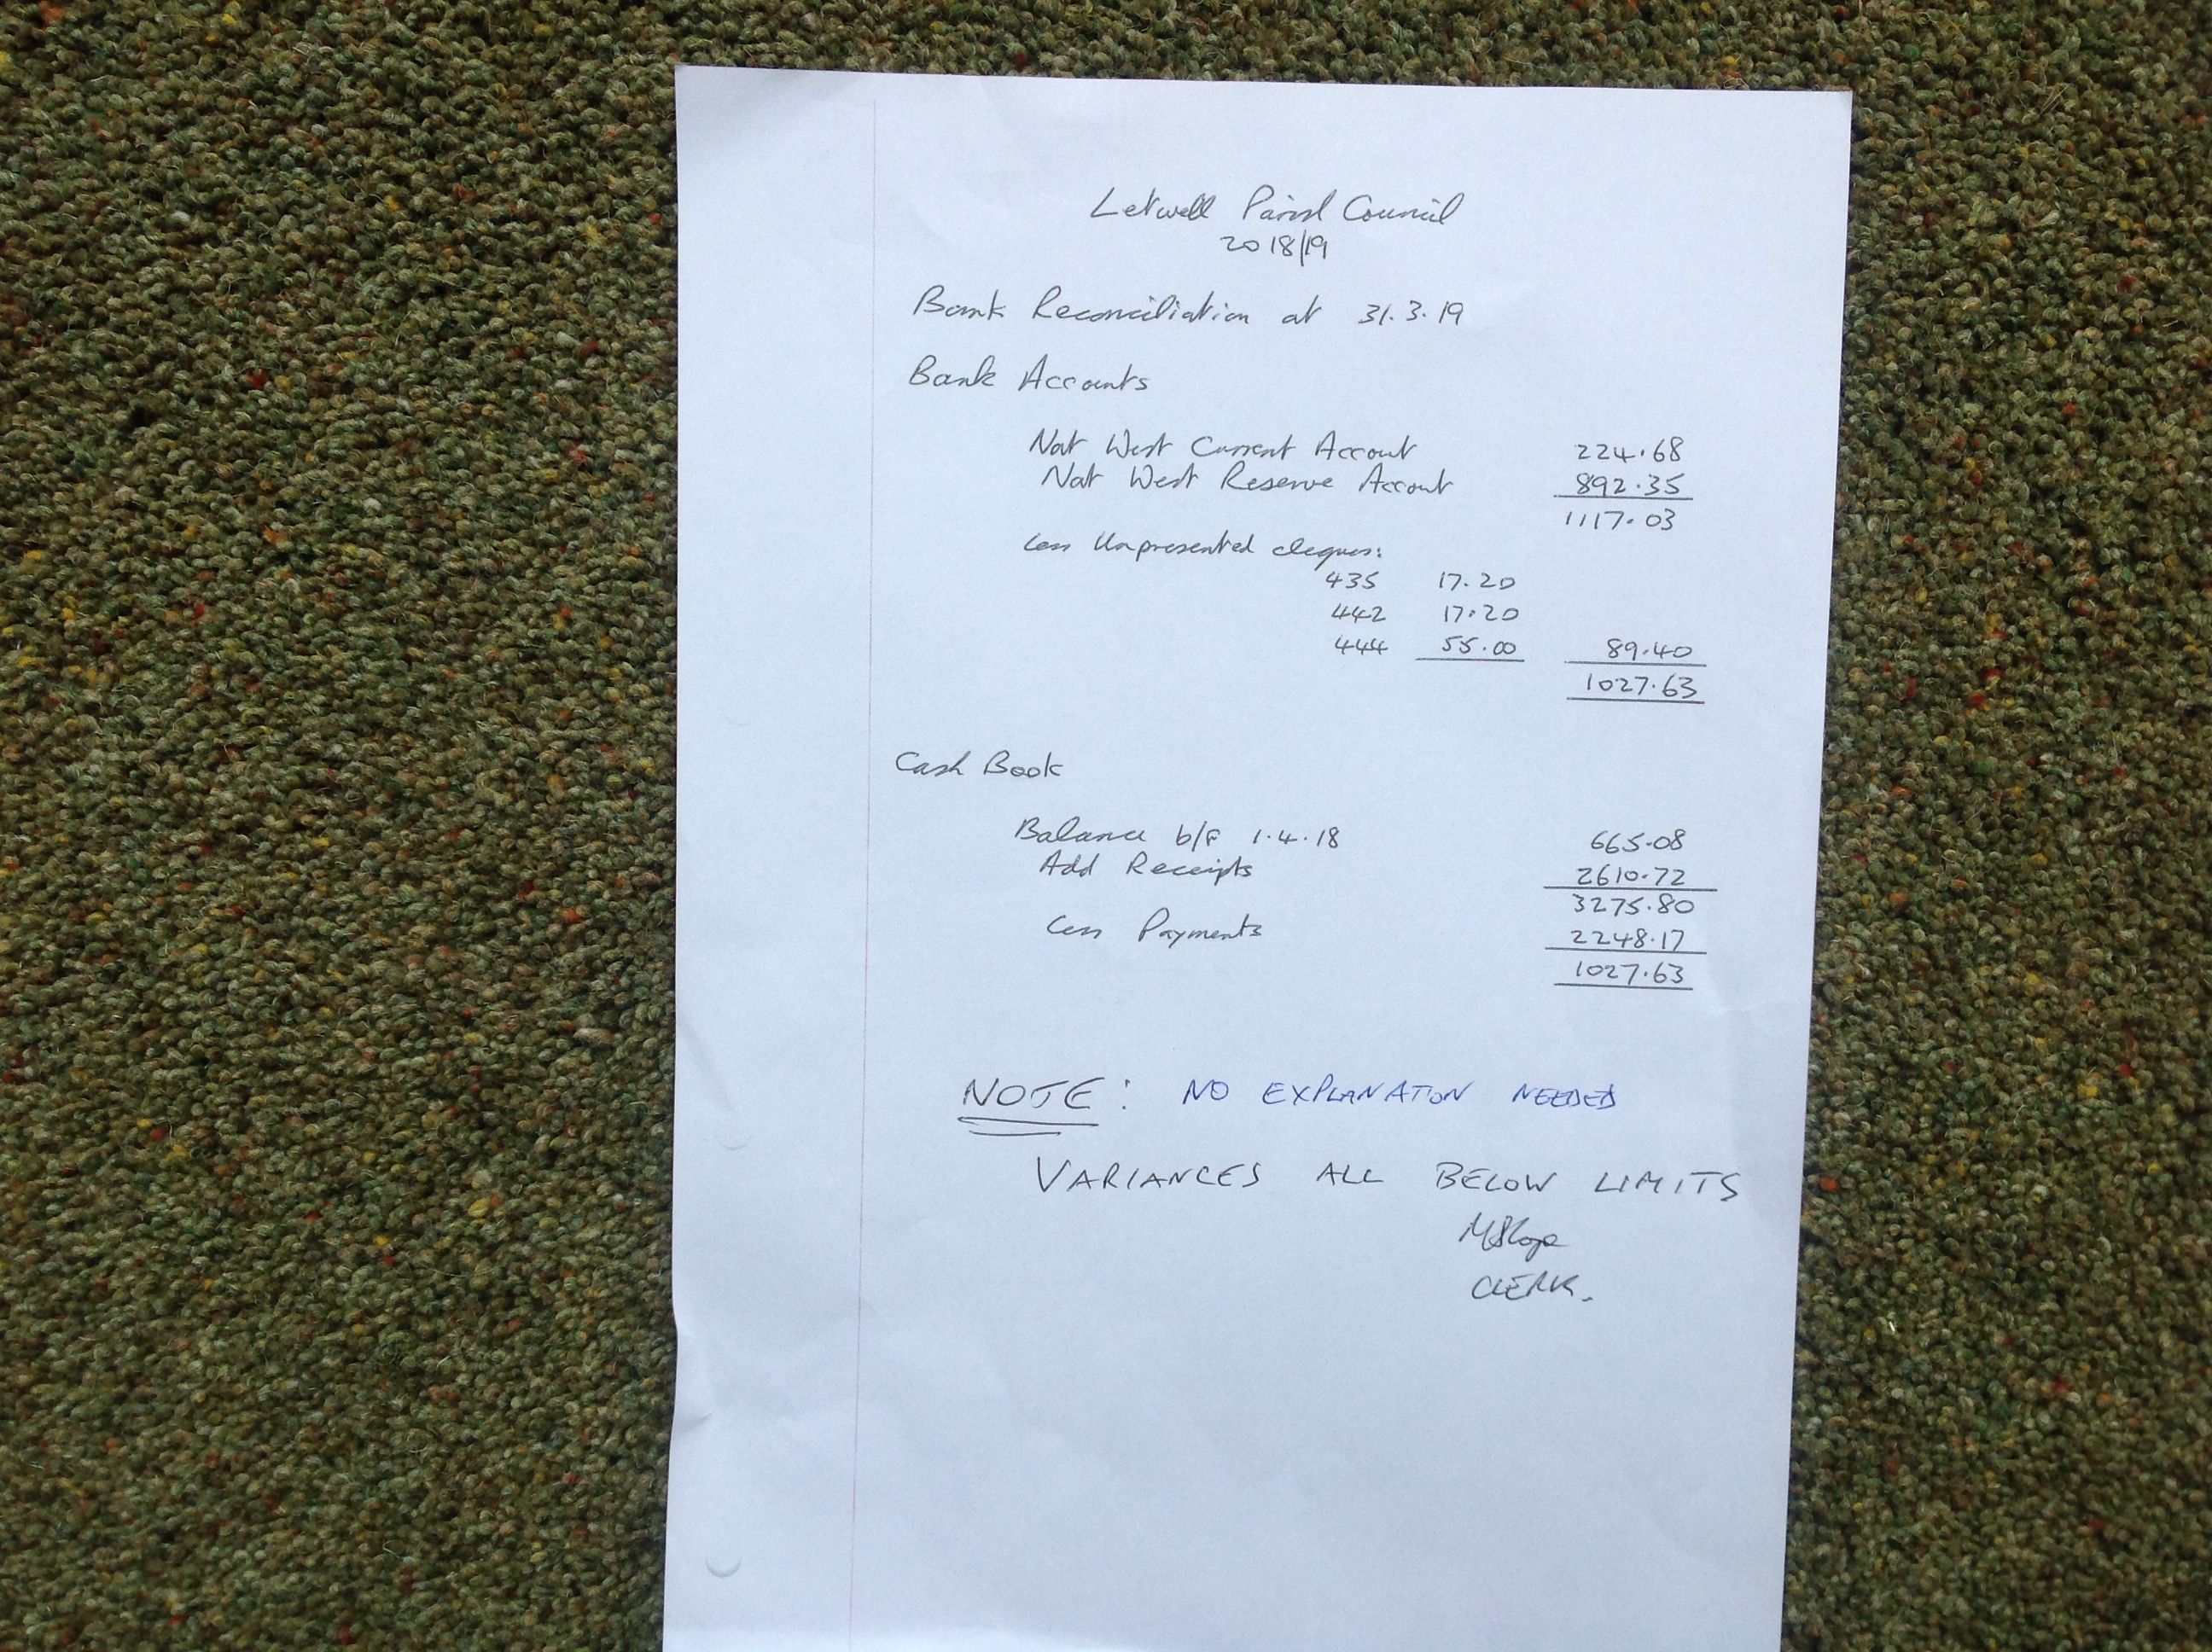 Letwell Parish Council
2018/19
Bank Reconciliation at 31.3.19
Bank Accounts
Nat West Current Account 224.68
Nat West Reserve Account 892.35
1117.03
Less Unpresented cheques:
435 17.20
442 17.20
444 55.00 89.40
1027.63
Cash Book
Balance b/f 1.4.18 665.08
Add Receipts 2610.72
3275.80
Less Payments 2248.17
1027.63
NOTE: NO EXPLANATION NEEDED
VARIANCES ALL BELOW LIMITS
CLERK.